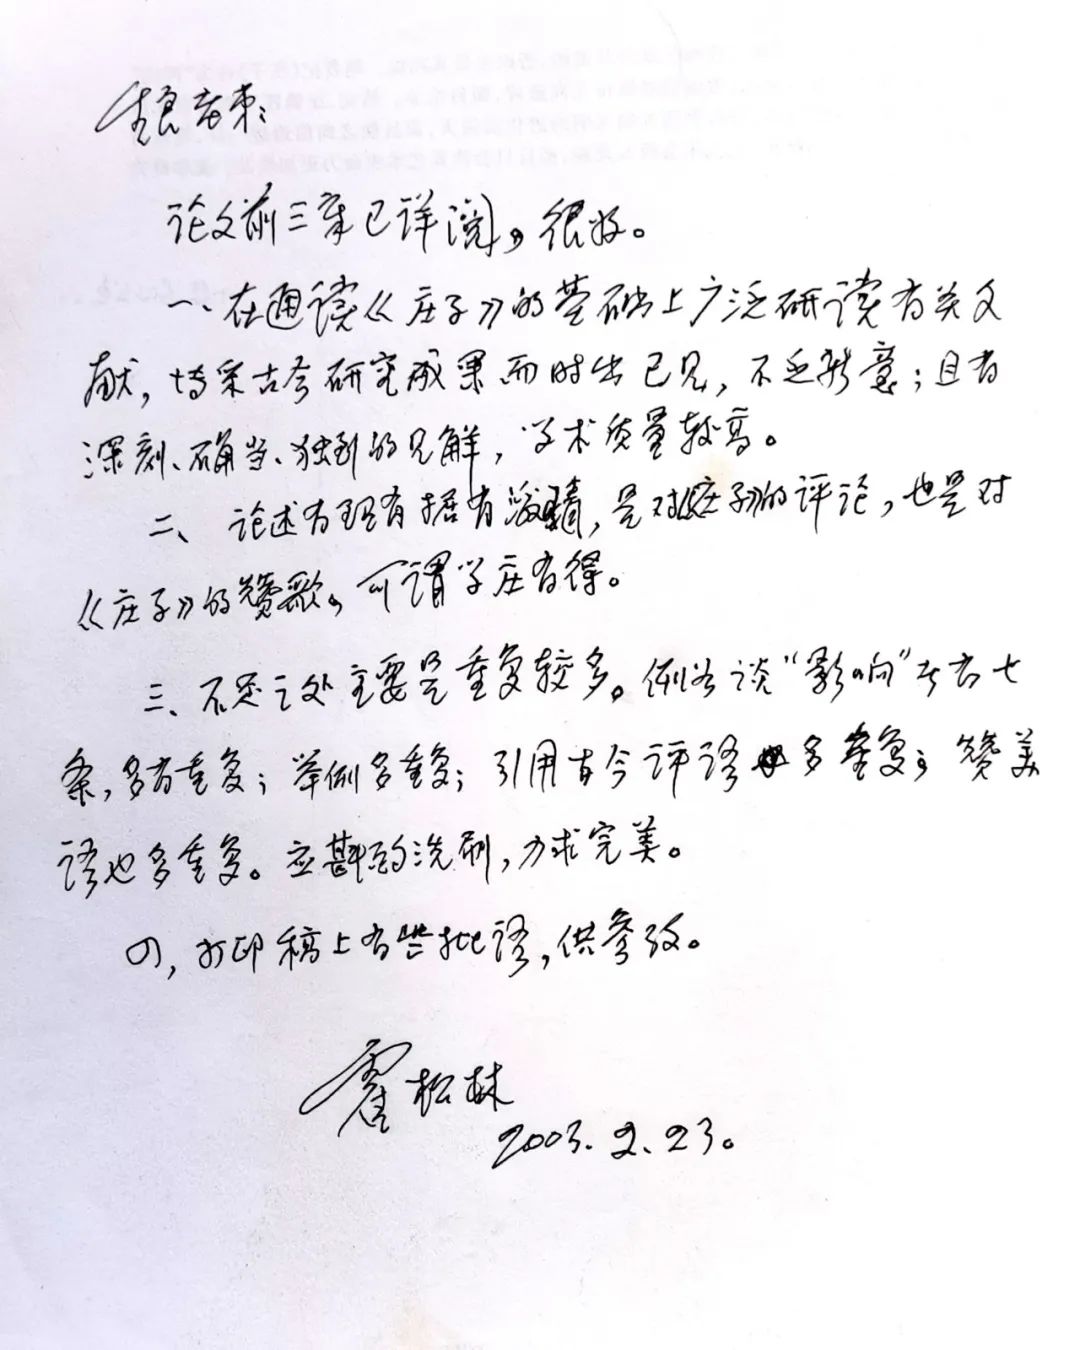 生良
论文前三章已详阅，很好。
一、在通读《庄子》的基础上广泛研读有关文
献，博采古今研究成果而时出己见，不乏新意；且有
深刻、确当、独到的见解，学术质量较高。
二、论述有理有据有激情，是对《庄子》的评论，也是对
《庄子》的赞歌，可谓学庄有得。
三、不足之处主要是重复较多。例如谈“影响”有七
条，多有重复；举例多重复；引用古今评语多重复；赞美
语也多重复。应斟酌洗刷，力求完美。
四，打印稿上有些批语，供参考。
霍松林
2003.2.23。